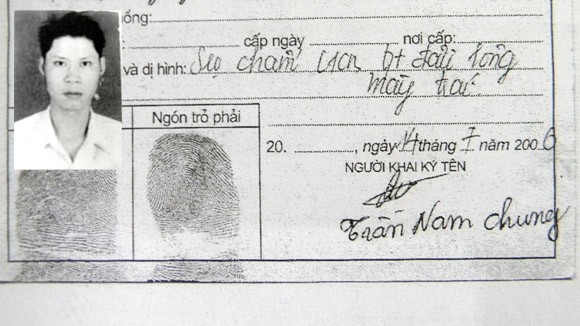 ồng:
cấp ngày nơi cấp:
và dị hình: Sẹo chấm 1cm đầu lông
mày trái.
Ngón trỏ phải
20. , ngày 14 tháng 7 năm 2006
NGƯỜI KHAI KÝ TÊN
Trần Nam Chung